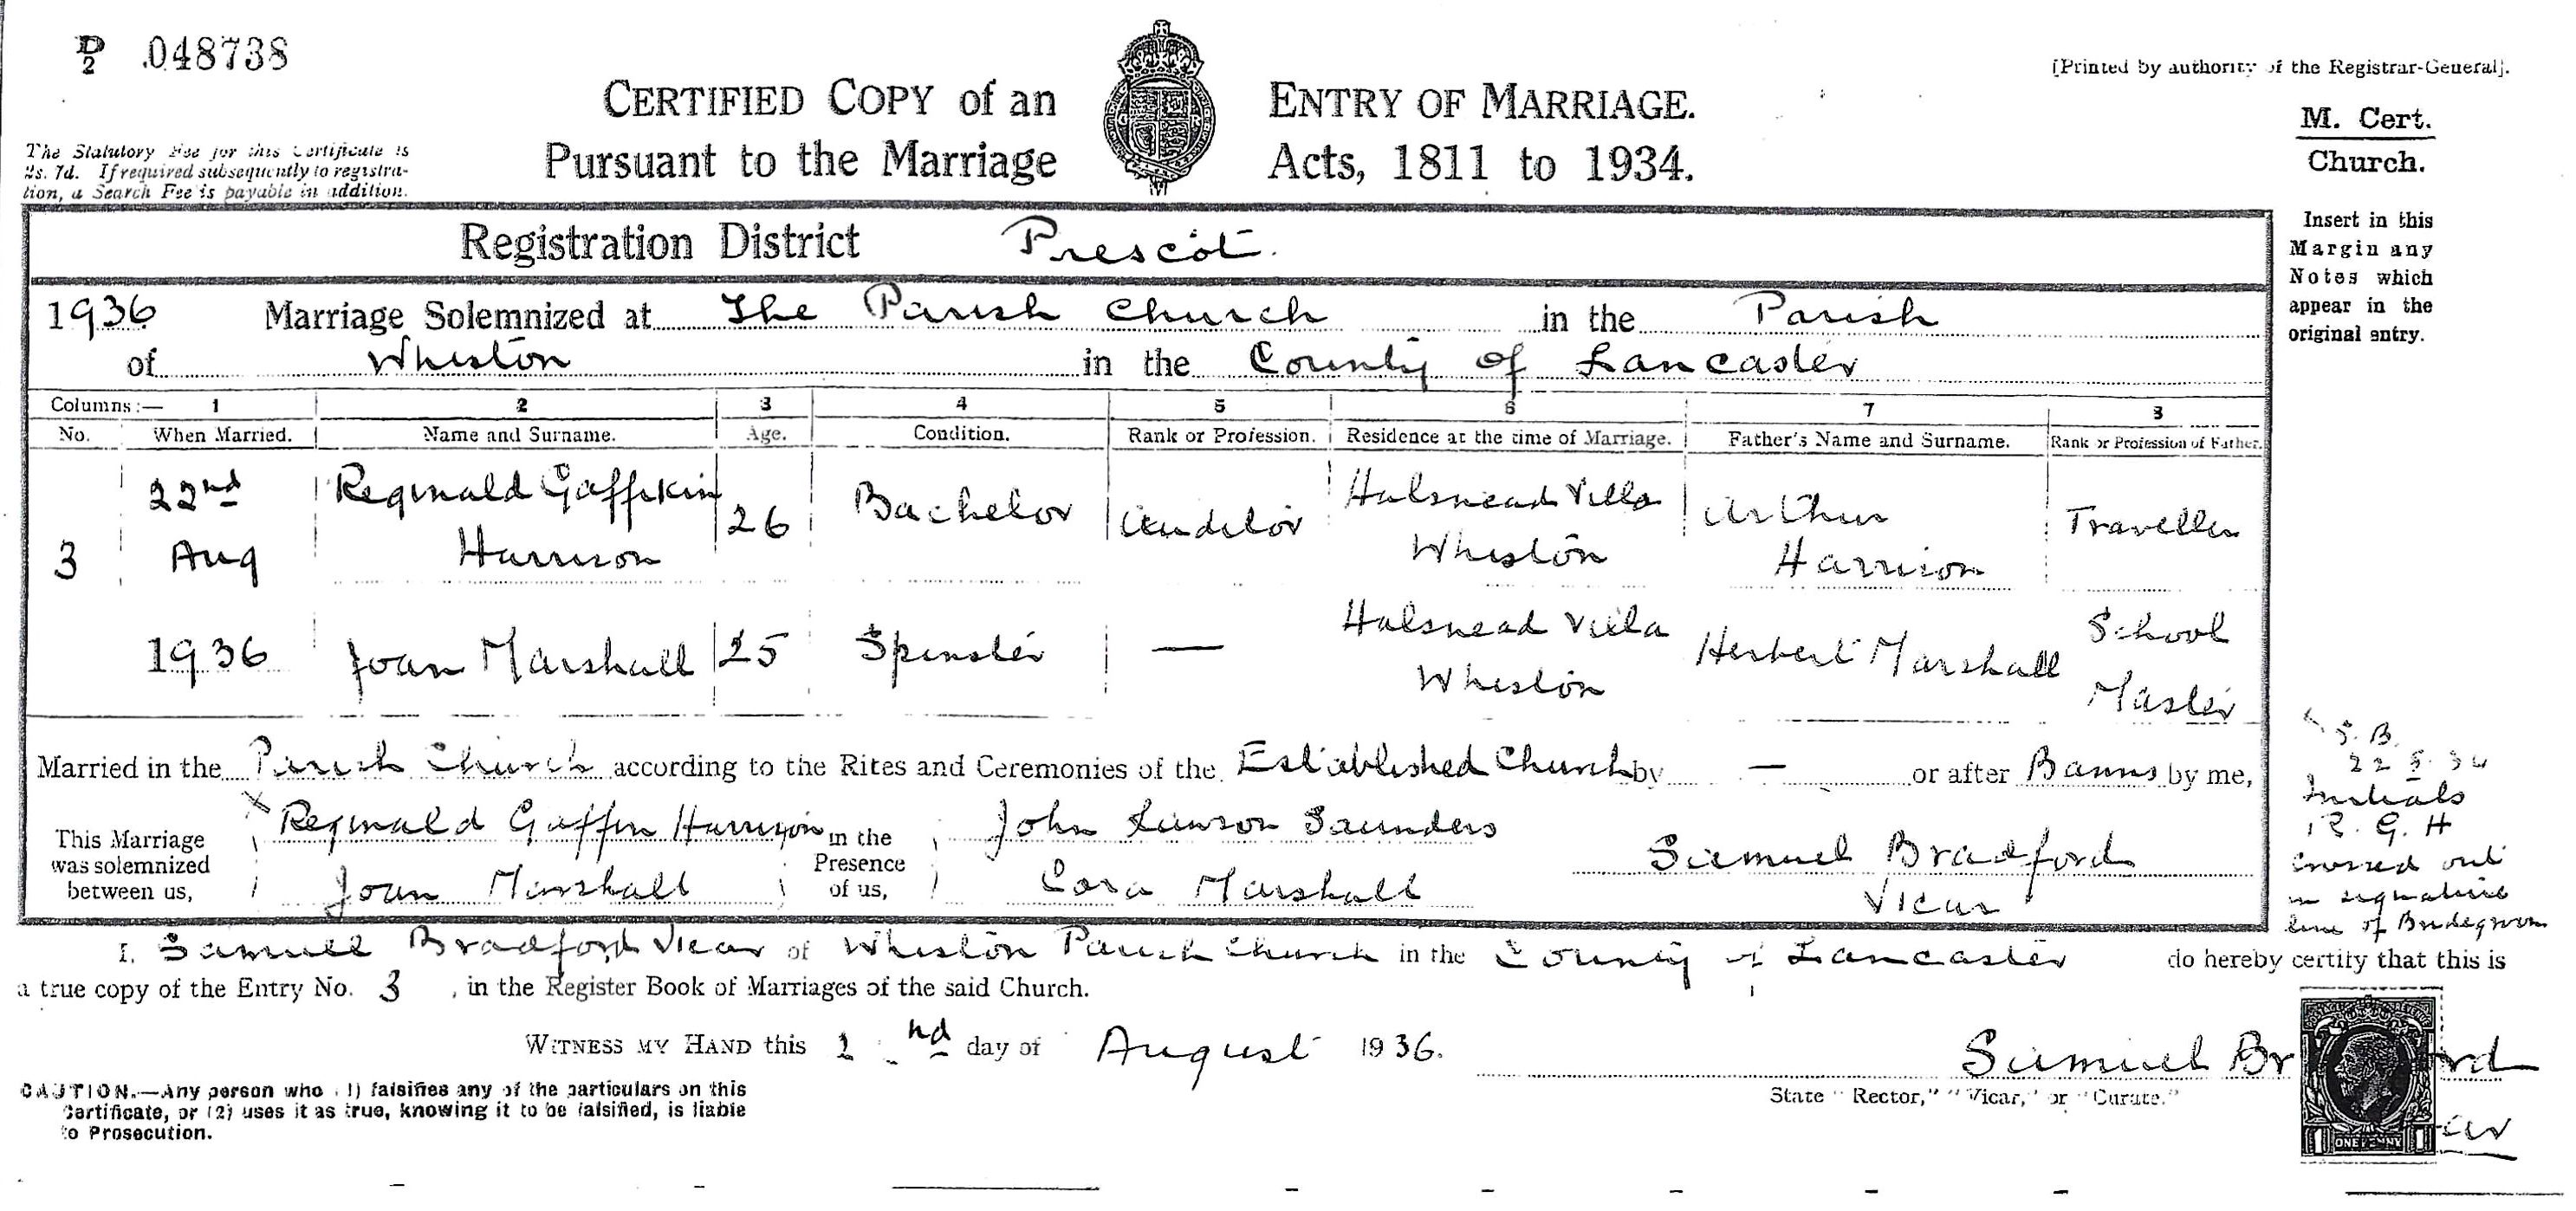 D/2 048738
[Printed by authority of the Registrar-General].
CERTIFIED COPY of an ENTRY OF MARRIAGE.
Pursuant to the Marriage Acts, 1811 to 1934.
M. Cert.
Church.
The Statutory Fee for this Certificate is
2s. 7d. If required subsequently to registra-
tion, a Search Fee is payable in addition.
Insert in this
Margin any
Notes which
appear in the
original entry.
Registration District Prescot.
1936 Marriage Solemnized at The Parish Church in the Parish
of Whiston in the County of Lancaster
Columns:— 1 2 3 4 5 6 7 8
No. When Married. Name and Surname. Age. Condition. Rank or Profession. Residence at the time of Marriage. Father's Name and Surname. Rank or Profession of Father.
3 22nd Aug 1936
Reginald Gaffikin Harrison 26 Bachelor Halsnead Villa Whiston Arthur Harrison Traveller
Joan Marshall 25 Spinster — Halsnead Villa Whiston Herbert Marshall School Master
Married in the Parish Church according to the Rites and Ceremonies of the Established Church by — or after Banns by me,
This Marriage
was solemnized
between us,
Reginald Harrison
Joan Marshall
in the
Presence
of us,
John Lawson Saunders
Cora Marshall
Samuel Bradford
Vicar
S. B.
Initials
R. G. H
crossed out
in signature
line of Bridegroom
I, Samuel Bradford Vicar of Whiston Parish Church in the County of Lancaster do hereby certify that this is
a true copy of the Entry No. 3, in the Register Book of Marriages of the said Church.
WITNESS MY HAND this nd day of August 1936.
Samuel Br rd
State "Rector," "Vicar," or "Curate."
CAUTION.—Any person who (1) falsifies any of the particulars on this
certificate, or (2) uses it as true, knowing it to be falsified, is liable
to Prosecution.
1 ONE PENNY 1